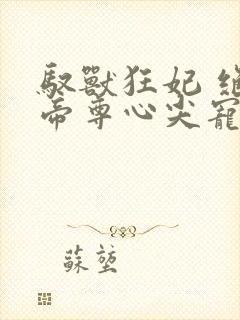 馭獸狂妃
帝尊心尖寵
蘇